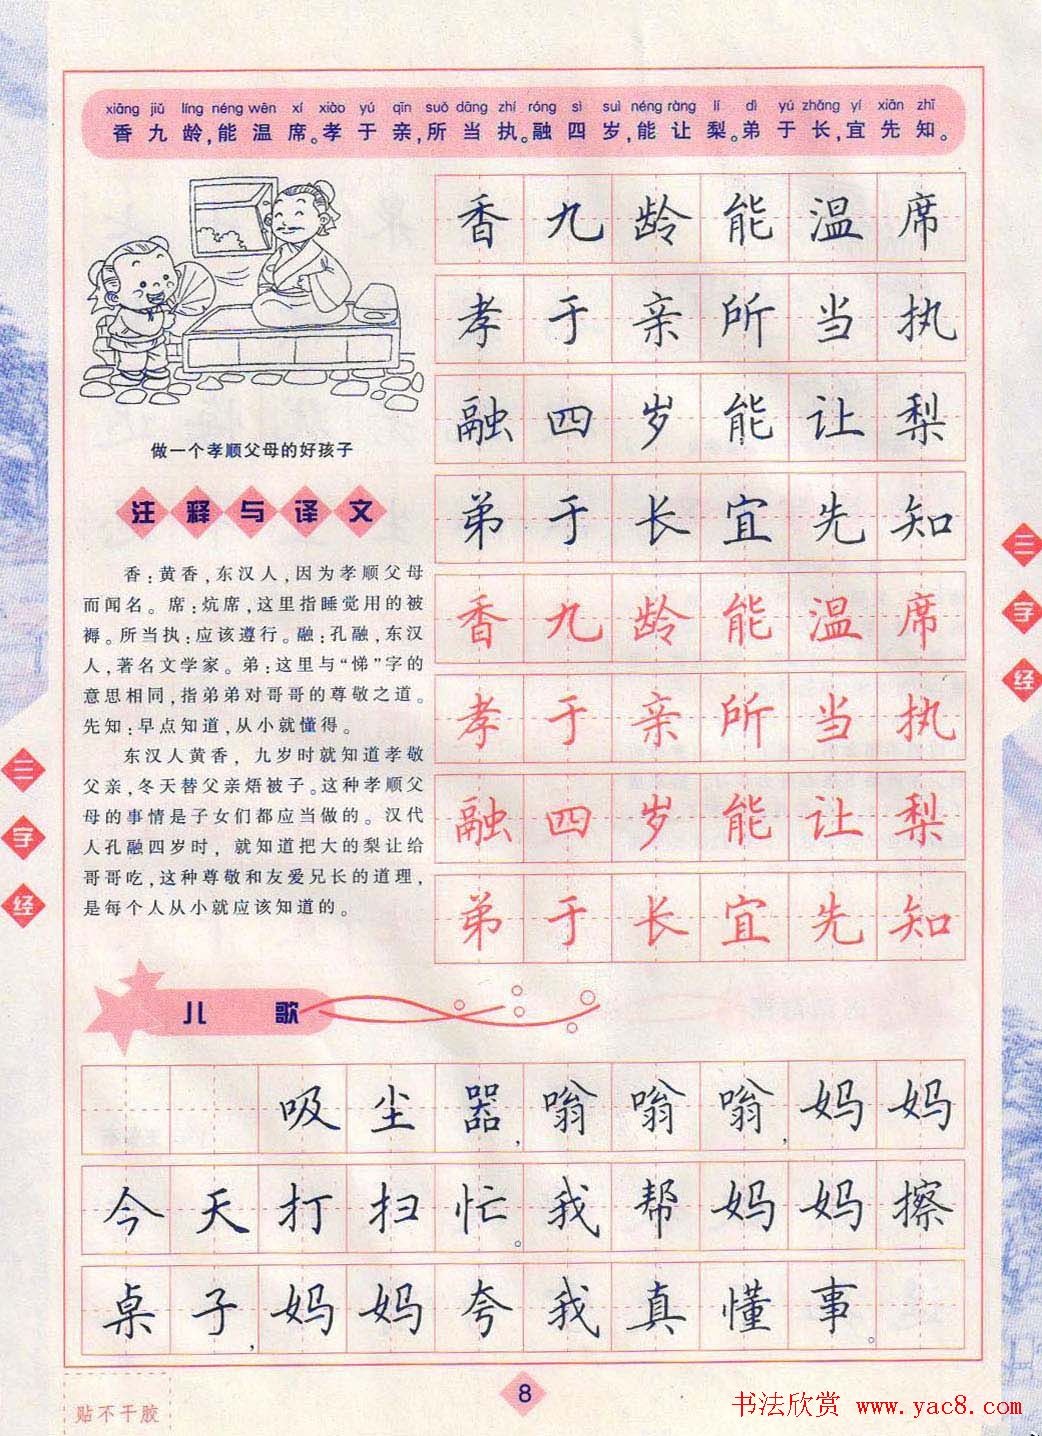 xiāng jiǔ líng néng wēn xí xiào yú qīn suǒ dāng zhí róng sì suì néng ràng lí dì yú zhǎng yí xiān zhī
香九龄,能温席。孝于亲,所当执。融四岁,能让梨。弟于长,宜先知。
做一个孝顺父母的好孩子
注释与译文
香:黄香,东汉人,因为孝顺父母
而闻名。席:炕席,这里指睡觉用的被
褥。所当执:应该遵行。融:孔融,东汉
人,著名文学家。弟:这里与“悌”字的
意思相同,指弟弟对哥哥的尊敬之道。
先知:早点知道,从小就懂得。
东汉人黄香,九岁时就知道孝敬
父亲,冬天替父亲焐被子。这种孝顺父
母的事情是子女们都应当做的。汉代
人孔融四岁时,就知道把大的梨让给
哥哥吃,这种尊敬和友爱兄长的道理,
是每个人从小就应该知道的。
香九龄能温席
孝于亲所当执
融四岁能让梨
弟于长宜先知
香九龄能温席
孝于亲所当执
融四岁能让梨
弟于长宜先知
三字经
三字经
儿歌
吸尘器,嗡嗡嗡,妈妈
今天打扫忙。我帮妈妈擦
桌子,妈妈夸我真懂事。
8
贴不干胶
书法欣赏 www.yac8.com